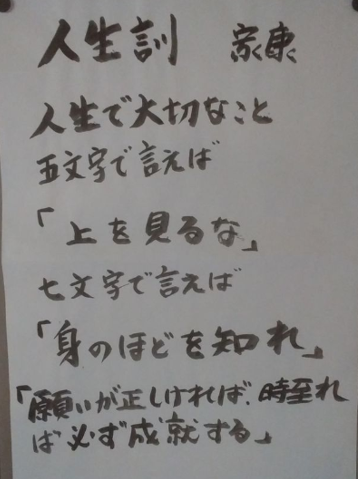 人生訓 家康
人生で大切なこと
五文字で言えば
「上を見るな」
七文字で言えば
「身のほどを知れ」
「願いが正しければ、時至れ
ば必ず成就する」